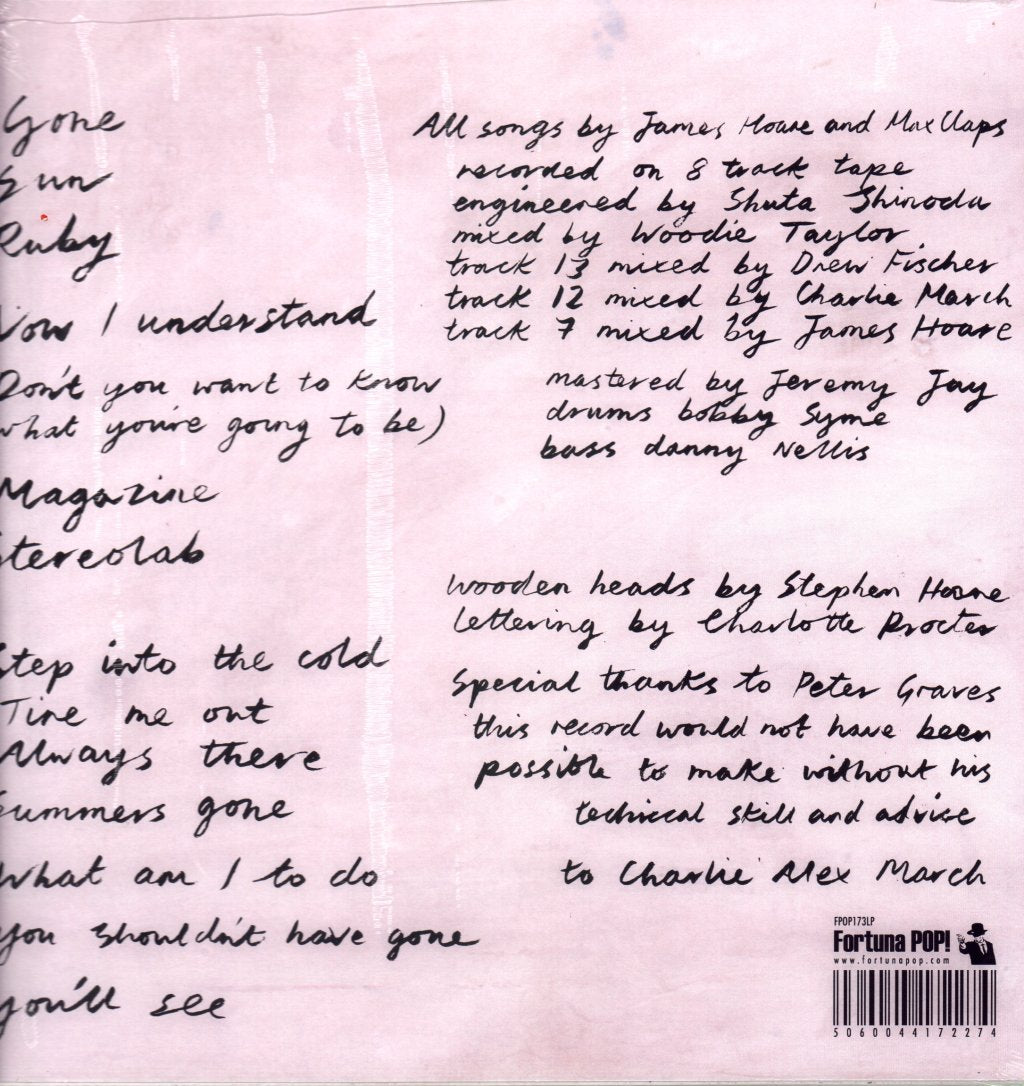 Gone
Sun
Ruby
Now I understand
Don't you want to know
what you're going to be)
Magazine
Stereolab
Step into the cold
Tire me out
Always there
Summers gone
What am I to do
You shouldn't have gone
you'll see
All songs by James Hoare and Max Claps
recorded on 8 track tape
engineered by Shuta Shinoda
mixed by Woodie Taylor.
track 13 mixed by Drew Fischer
track 12 mixed by Charlie March
track 7 mixed by James Hoare
mastered by Jeremy Jay
drums bobby Syme
bass danny Nellis
wooden heads by Stephen Hoare
lettering by Charlotte Procter
Special thanks to Peter Graves
this record would not have been
possible to make without his
technical skill and advise
to Charlie Alex March
FPOP173LP
Fortuna POP!
www.fortunapop.com
5060044172274